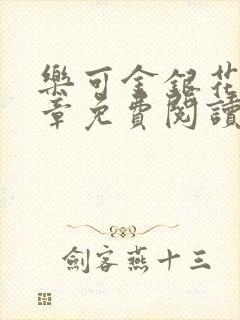 樂可金銀花
章免費閱讀
劍客燕十三